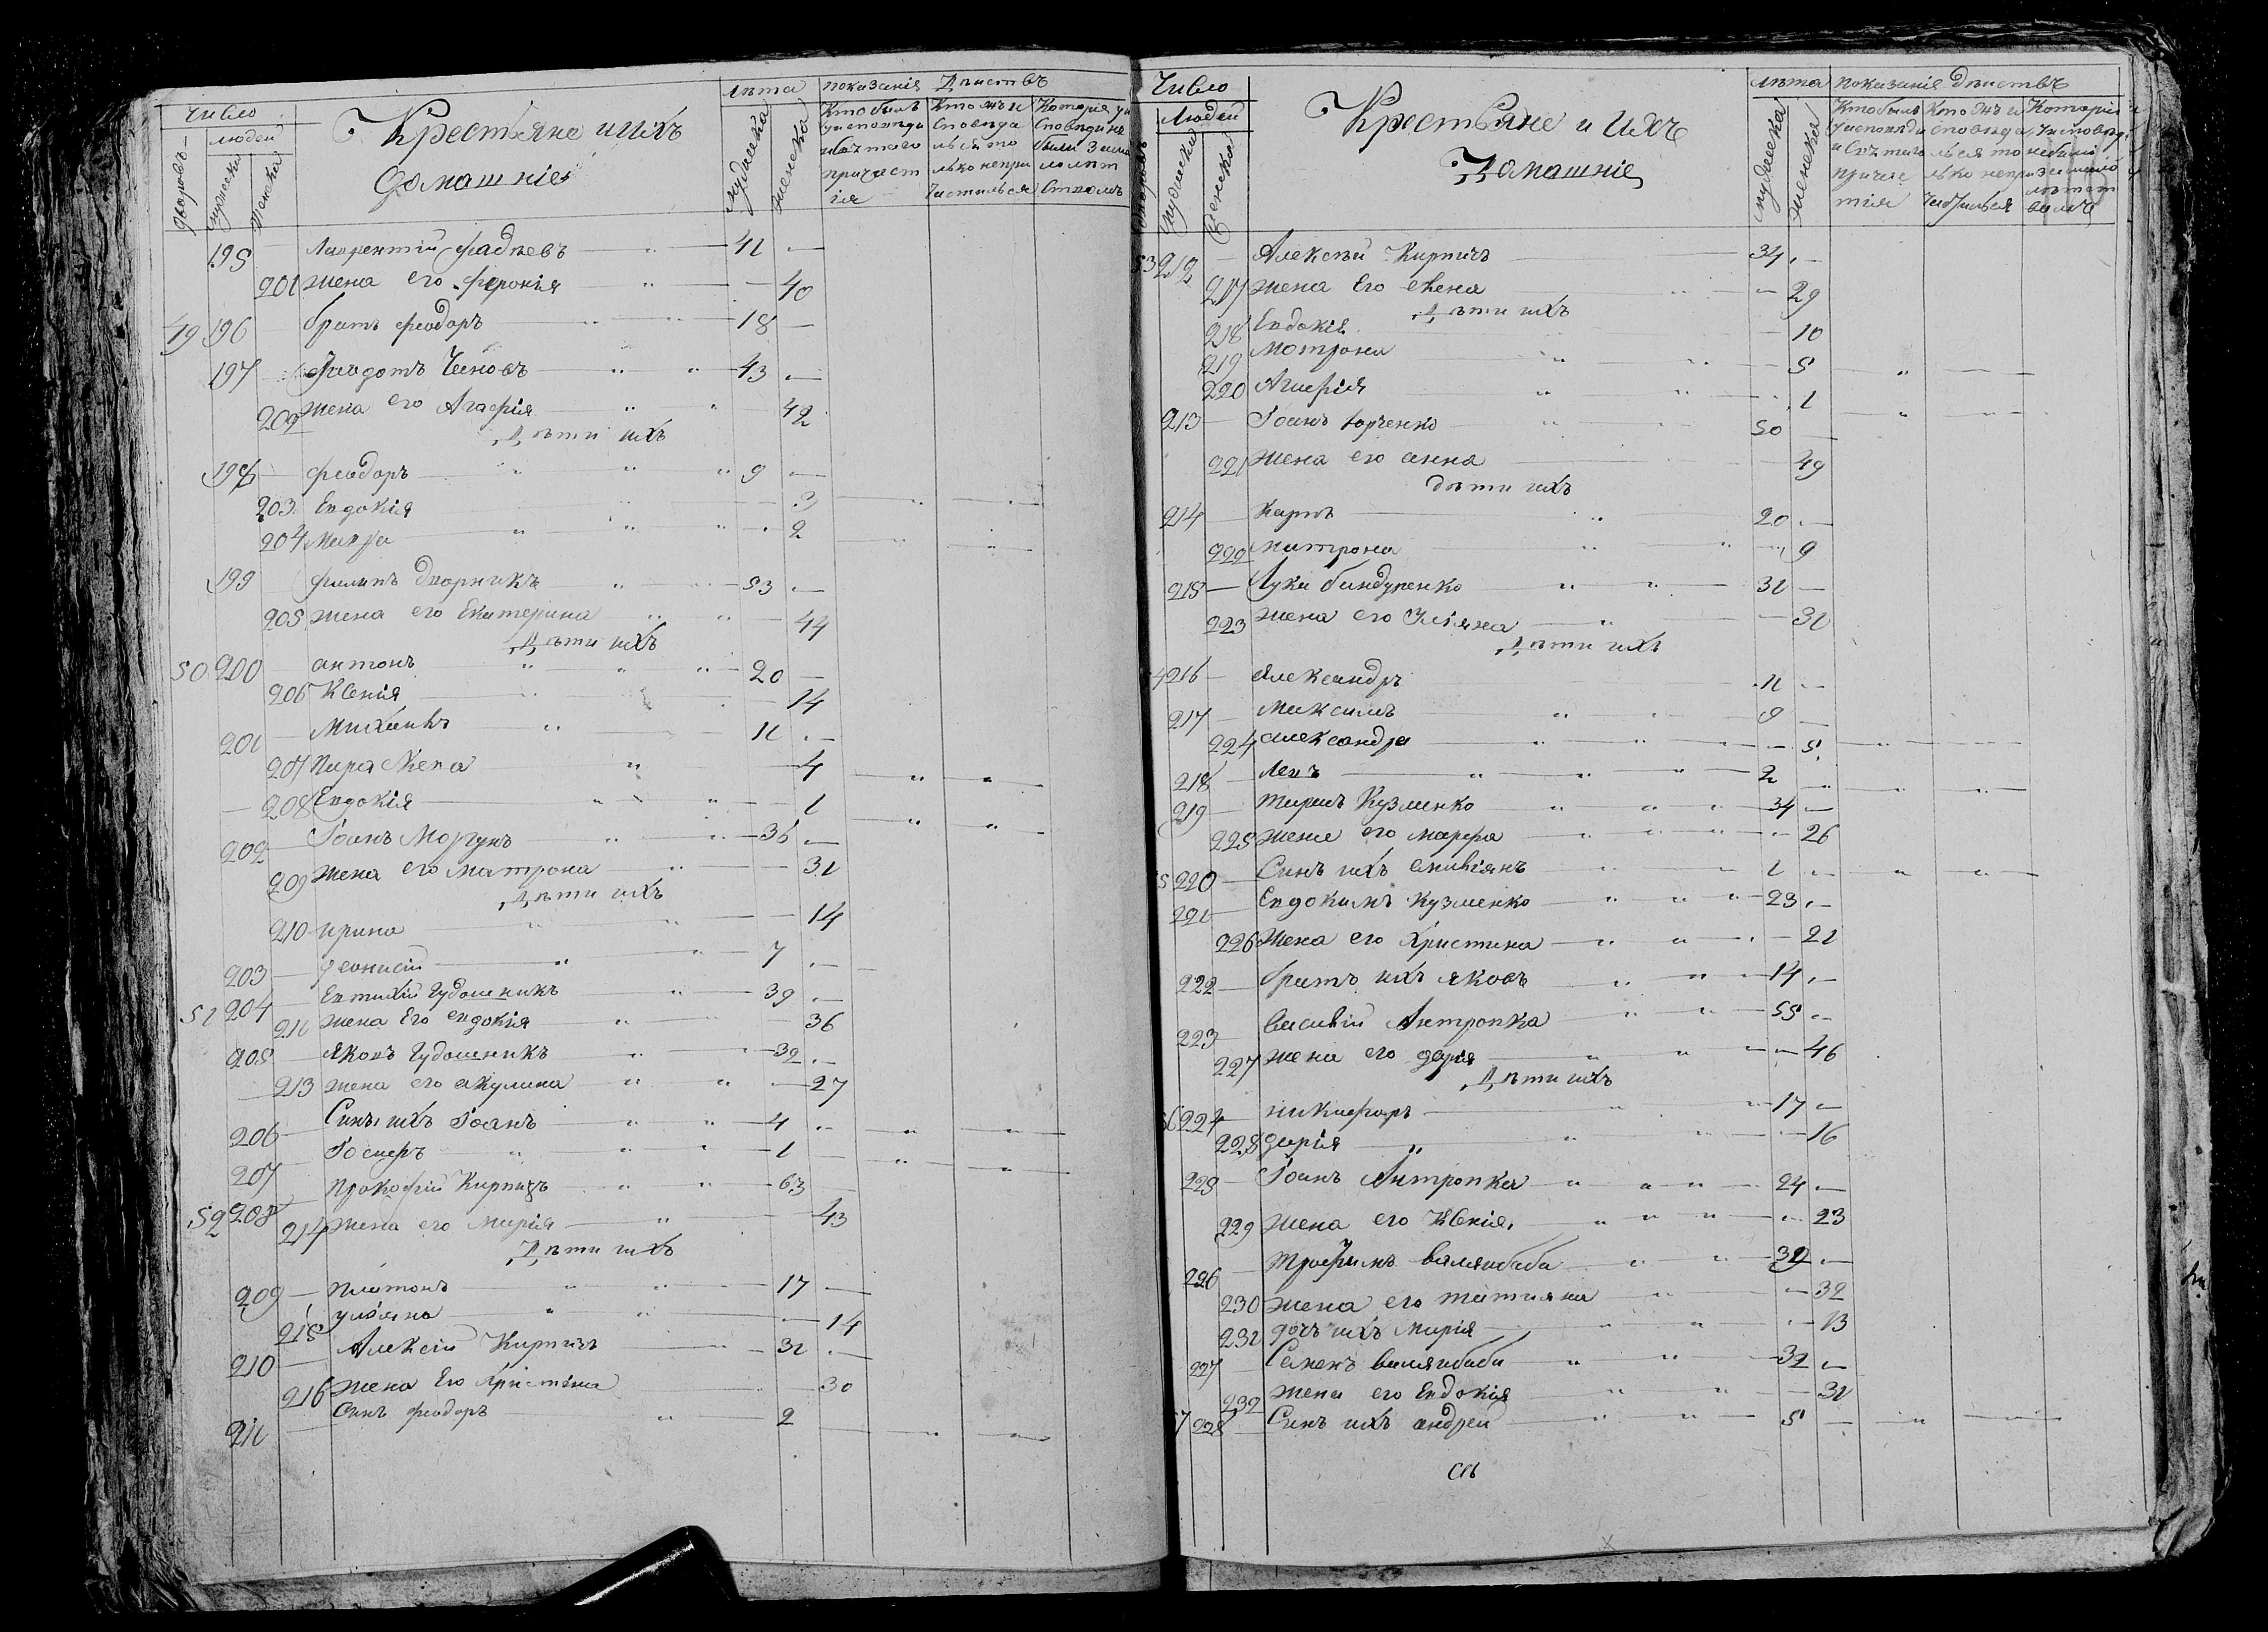 Число
людей
дворовъ
мужеска
женска
Крестьяне и ихъ
домашніе
лѣта
мужеска
женска
показанія дѣйствъ
195 Лаврентій Фадѣевъ 41
201 жена его Феронія 40
49 196 братъ Феодоръ 18
197 Феодотъ 43
202 жена его Агафія 42
Дѣти ихъ
198 Феодоръ 9
203 Евдокія 3
204 Мавра 2
199 Филипъ Дворникъ 53
205 жена его Екатерина 44
Дѣти ихъ
50 200 антонъ 20
206 Ксенія 14
201 Михаилъ 11
207 Параскева 4
208 Евдокія 1
202 Іоанъ Моргунъ 36
209 жена его матрона 31
Дѣти ихъ
210 ирина 14
203 Деонисій 7
51 204 Евтихій Гудошникъ 39
211 жена Его евдокія 36
205 Яковъ Гудошникъ 32
213 жена его акулина 27
206 Синъ ихъ Іоанъ 4
207 Іосифъ 1
52 208 Прокофій Кирпичъ 63
214 жена его Марія 43
Дѣти ихъ
209 Платонъ 17
215 улияна 14
210 Алексій Кирпичъ 31
216 жена Его Христина 30
211 Синъ феодоръ 2
Число
Людей
мужеска
женска
Крестьяне и ихъ
Домашніе
лѣта
мужеска
женска
показанія дѣиствъ
53 212 Алексѣй Кирпичъ 34
217 жена Его елена 29
Дѣти ихъ
218 Евдокія 10
219 Мотрона 5
220 Агафія 1
213 Іоанъ Юрченко 50
221 жена его анна 49
дѣти ихъ
214 Карпъ 20
222 матрона 9
215 Лука бандуренко 31
223 жена его Уліяна 31
Дѣти ихъ
216 александръ 11
217 Максимъ 9
224 александра 5
218 Левъ 2
219 Тарасъ Кузменко 34
225 жена его марфа 26
220 Синъ ихъ емиліянъ 1
221 Евдокимъ Кузменко 23
226 жена его Христина 21
222 братъ ихъ яковъ 14
223 василій Антропка 55
227 жена его дарія 46
Дѣти ихъ
56 224 никифоръ 17
228 дарія 16
229 Іоанъ Антропка 24
229 жена его Ксенія 23
226 Трофимъ валяйбаба 32
230 жена его татияна 32
231 дочъ ихъ Марія 13
227 Семенъ валяйбаба 32
232 жена его Евдокія 31
57 228 Синъ ихъ андрей 5